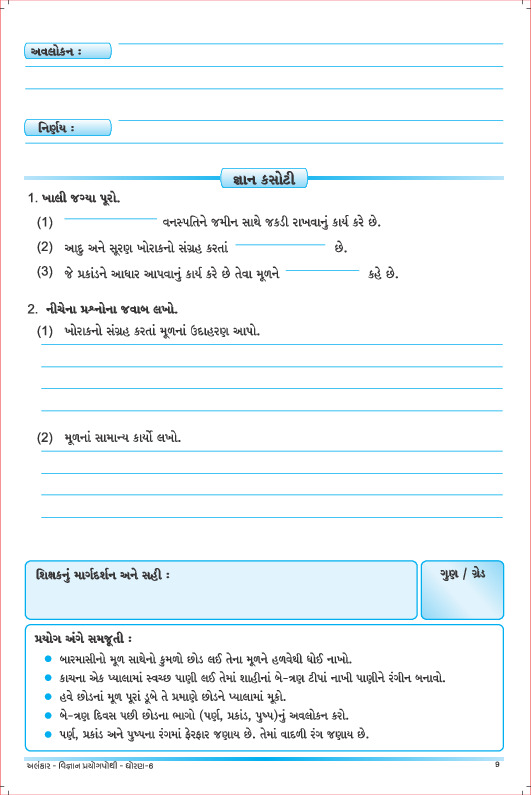 અવલોકન :
નિર્ણય :
જ્ઞાન કસોટી
1. ખાલી જગ્યા પૂરો.
(1) વનસ્પતિને જમીન સાથે જકડી રાખવાનું કાર્ય કરે છે.
(2) આદુ અને સૂરણ ખોરાકનો સંગ્રહ કરતાં છે.
(3) જે પ્રકાંડને આધાર આપવાનું કાર્ય કરે છે તેવા મૂળને કહે છે.
2. નીચેના પ્રશ્નોના જવાબ લખો.
(1) ખોરાકનો સંગ્રહ કરતાં મૂળનાં ઉદાહરણ આપો.
(2) મૂળનાં સામાન્ય કાર્યો લખો.
શિક્ષકનું માર્ગદર્શન અને સહી :
ગુણ / ગ્રેડ
પ્રયોગ અંગે સમજૂતી :
● બારમાસીનો મૂળ સાથેનો કુમળો છોડ લઈ તેના મૂળને હળવેથી ધોઈ નાખો.
● કાચના એક પ્યાલામાં સ્વચ્છ પાણી લઈ તેમાં શાહીનાં બે-ત્રણ ટીપાં નાખી પાણીને રંગીન બનાવો.
● હવે છોડનાં મૂળ પૂરાં ડૂબે તે પ્રમાણે છોડને પ્યાલામાં મૂકો.
● બે-ત્રણ દિવસ પછી છોડના ભાગો (પર્ણ, પ્રકાંડ, પુષ્પ)નું અવલોકન કરો.
● પર્ણ, પ્રકાંડ અને પુષ્પના રંગમાં ફેરફાર જણાય છે. તેમાં વાદળી રંગ જણાય છે.
અલંકાર - વિજ્ઞાન પ્રયોગપોથી - ધોરણ-6
9